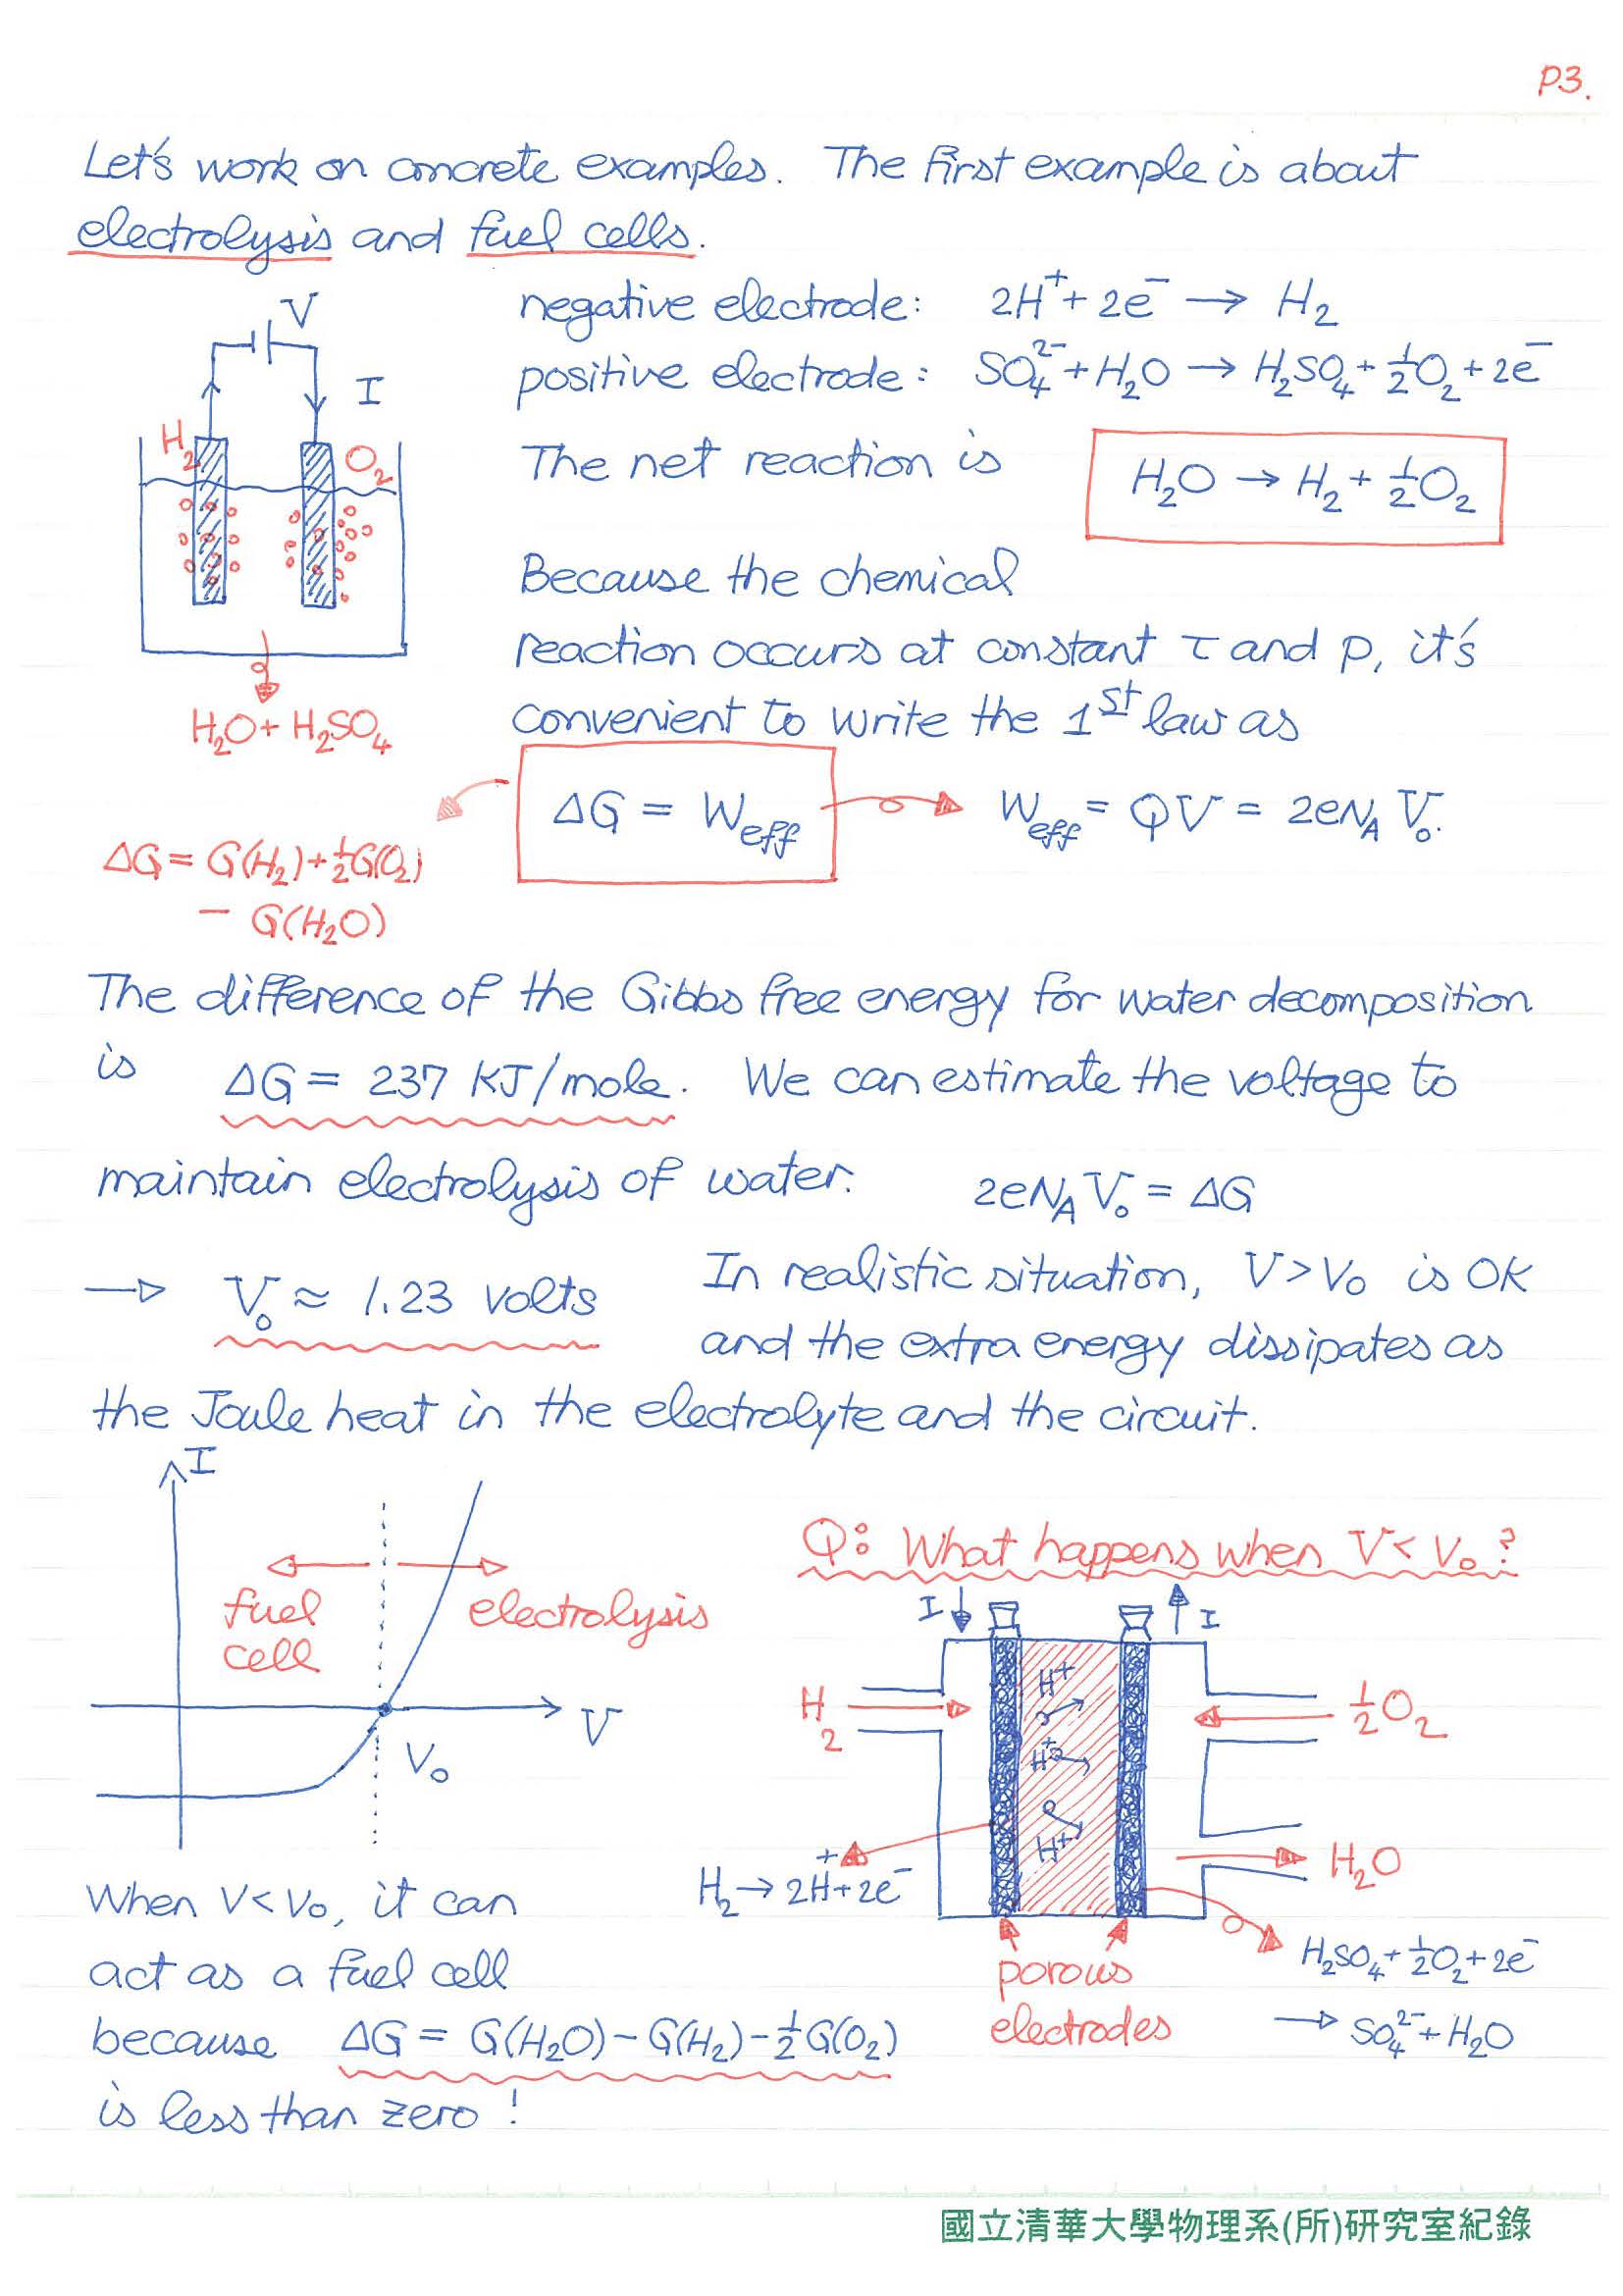 P3.
Let's work on concrete examples. The first example is about
electrolysis and fuel cells.
V
I
H₂
O₂
H₂O + H₂SO₄
negative electrode: 2H⁺ + 2e⁻ → H₂
positive electrode: SO₄²⁻ + H₂O → H₂SO₄ + ½O₂ + 2e⁻
The net reaction is H₂O → H₂ + ½O₂
Because the chemical
reaction occurs at constant τ and p, it's
convenient to write the 1st law as
ΔG = W_eff → W_eff = QV = 2eN_A V₀.
ΔG = G(H₂) + ½G(O₂)
− G(H₂O)
The difference of the Gibbs free energy for water decomposition
is ΔG = 237 KJ/mole. We can estimate the voltage to
maintain electrolysis of water. 2eN_A V₀ = ΔG
→ V₀ ≈ 1.23 volts In realistic situation, V > V₀ is OK
and the extra energy dissipates as
the Joule heat in the electrolyte and the circuit.
I
fuel
cell
electrolysis
V
V₀
Q: What happens when V < V₀?
I
I
H₂
H⁺
H⁺
H⁺
½O₂
H₂O
H₂ → 2H⁺ + 2e⁻
porous
electrodes
H₂SO₄ + ½O₂ + 2e⁻
→ SO₄²⁻ + H₂O
When V < V₀, it can
act as a fuel cell
because ΔG = G(H₂O) − G(H₂) − ½G(O₂)
is less than zero!
國立清華大學物理系(所)研究室紀錄